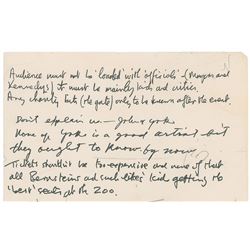 Audience must not be 'loaded' with 'officials' (Mayors and
Kennedys) it must be mainly kids and critics.
Any charity bits (re gate) only to be known after the event.
Don't explain us — John + Yoko
None of York is a good artist but
they ought to know by now
Tickets shouldn't be too expensive and none of that
all Bernsteins and such like's kid getting the
'best' seats at the zoo.